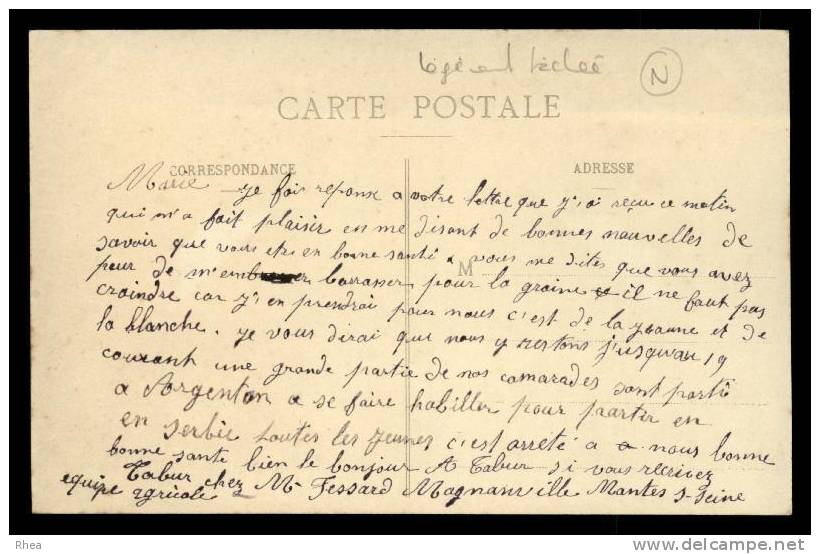 N
CARTE POSTALE
CORRESPONDANCE
ADRESSE
Marie Je fais reponse a votre lettre que j'ai reçu ce matin
qui m'a fait plaisir en me disant de bonnes nouvelles de
savoir que vous etes en bonne santé. vous me dites que vous avez
M
peur de m'embarrasser pour la graine il ne faut pas
craindre car j'en prendrai pour nous c'est de la jeaune et de
la blanche. Je vous dirai que nous y restons jusquau 19
courant une grande partie de nos camarades sont parti
a Argenton a se faire habiller pour partir en
en serbie toutes les jeunes c'est arreté a nous bonne
bonne sante bien le bonjour A Tabur si vous recrivez
Tabur chez Mr Fessard Magnanville Mantes S-Seine
equipe agricole
Rhea
delcampe.net